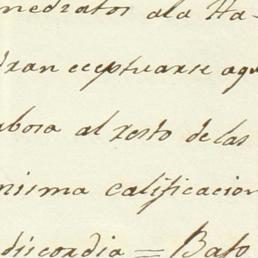 mediatos ala Ha-
dran eceptuarse aqu
abosa al resto de las
misma calificacion
discordia = Bajo